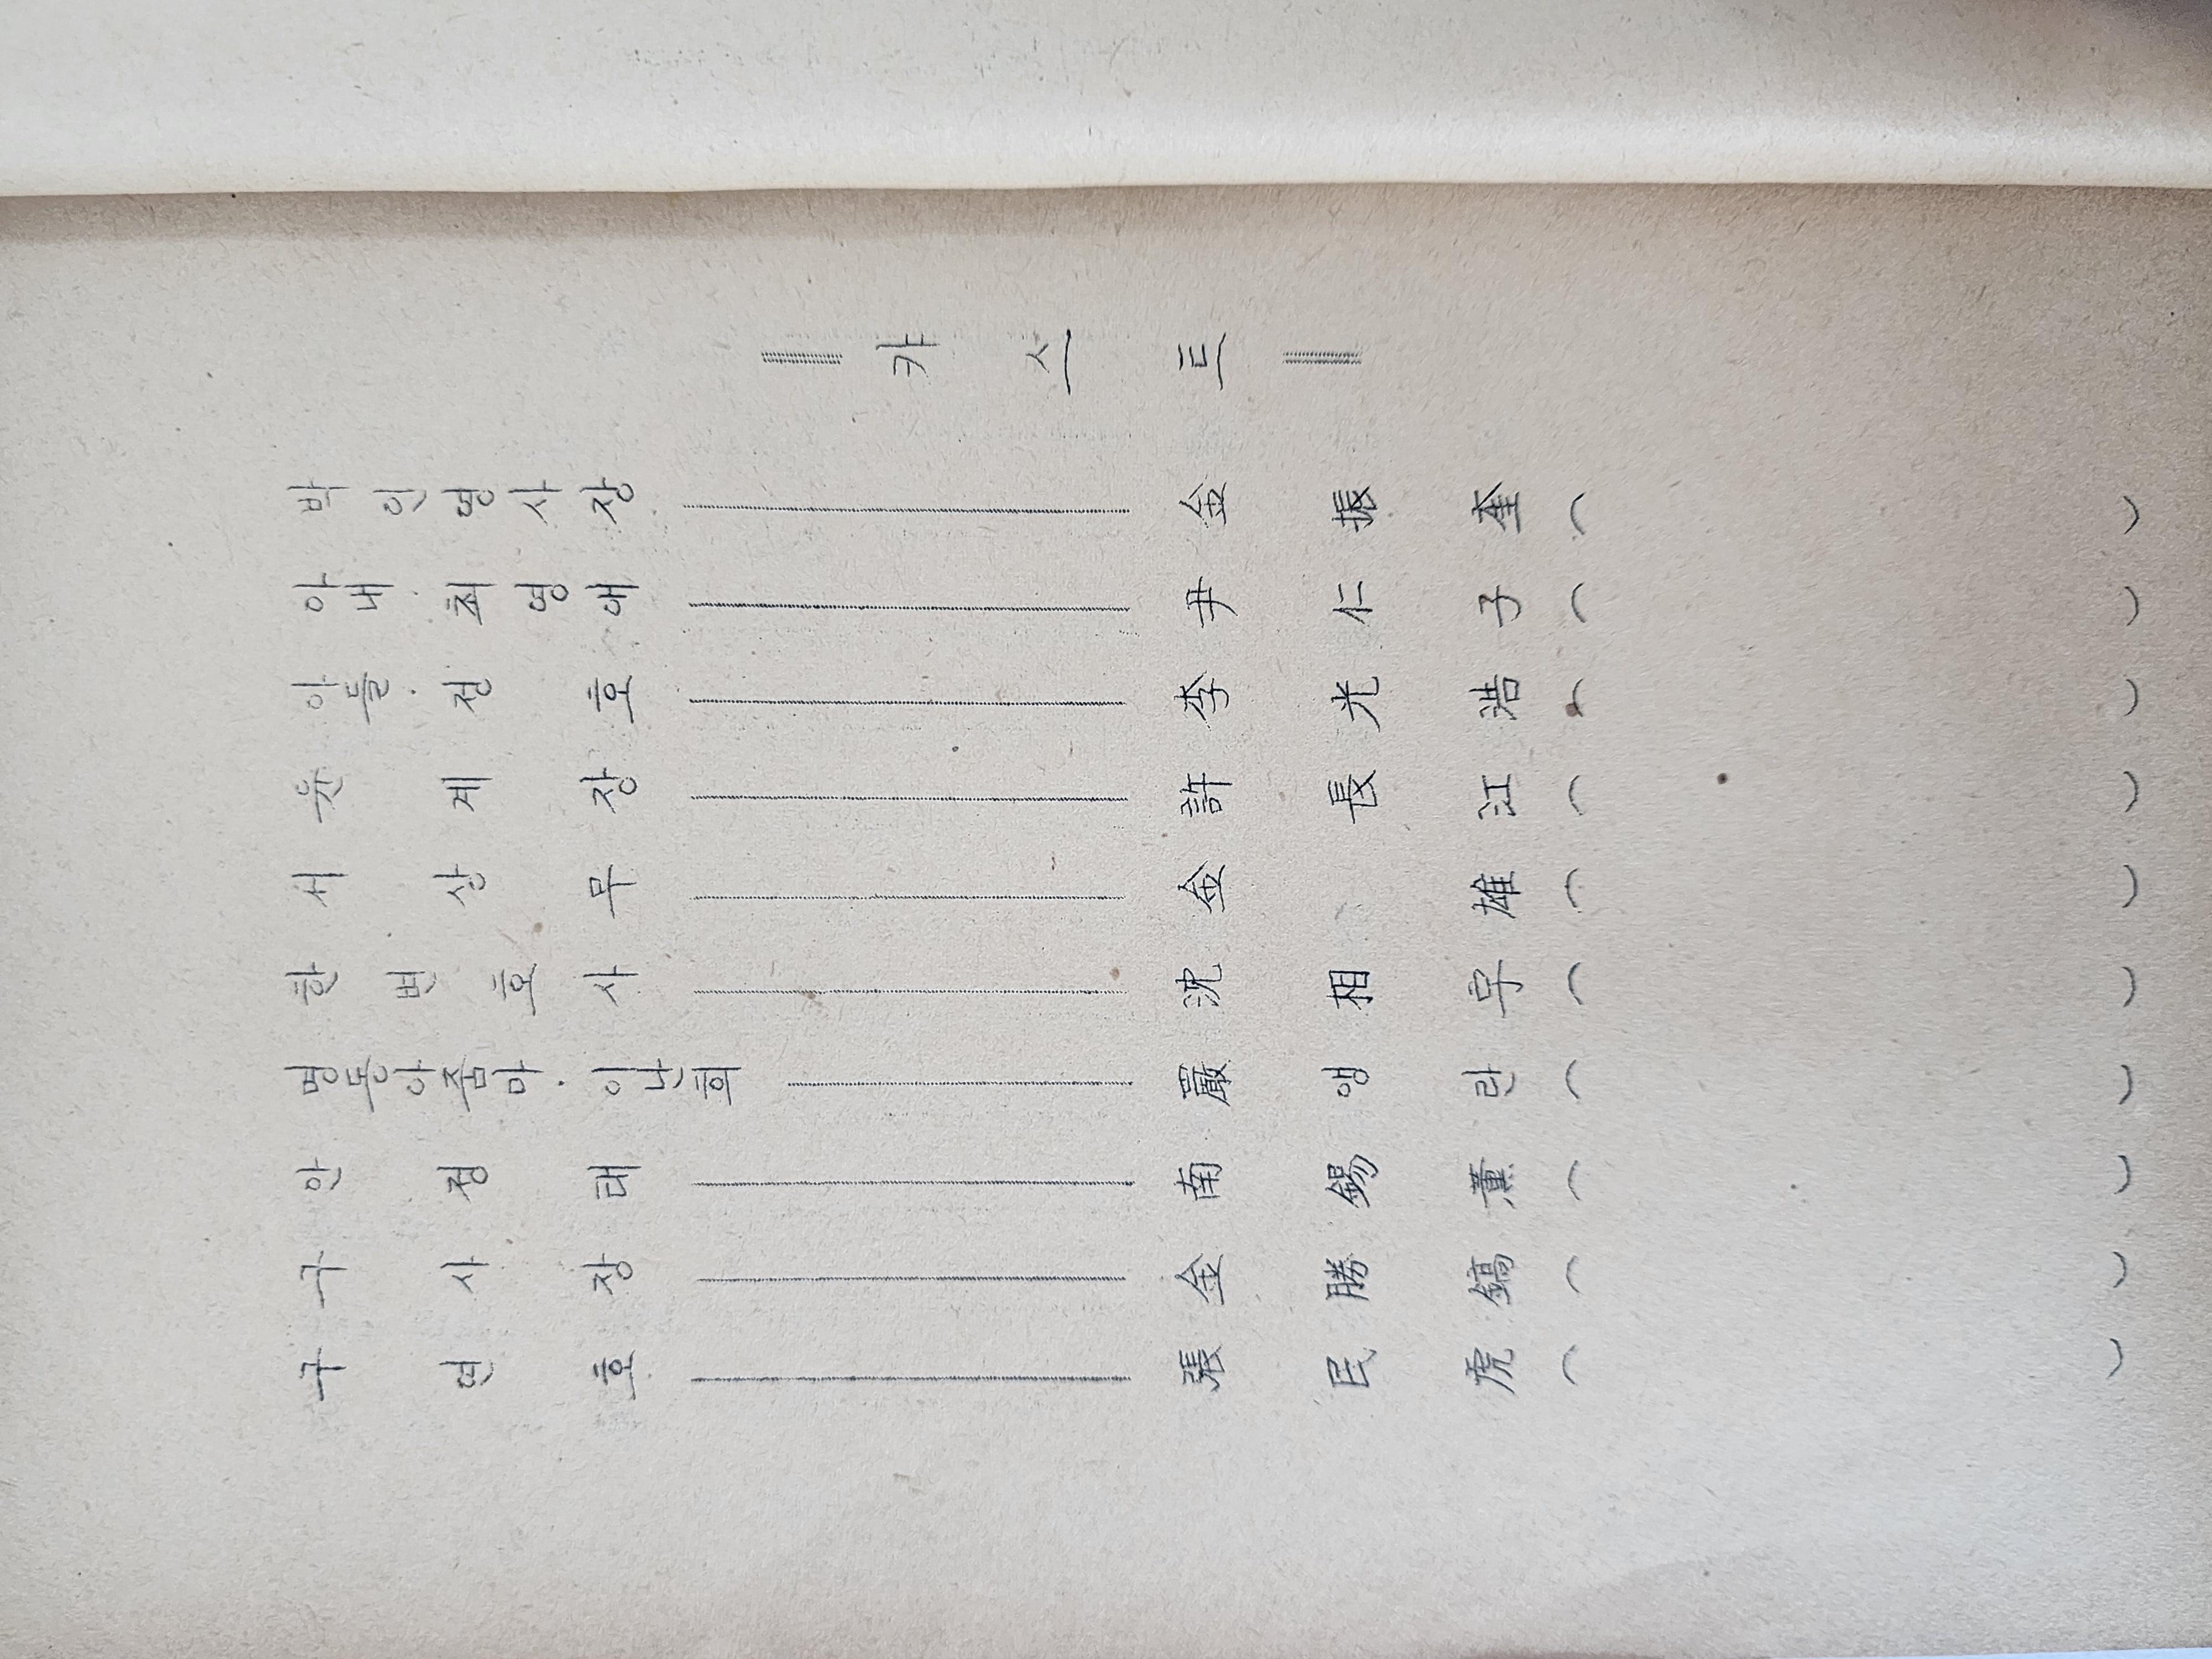 = 캬스트 =
박인영사장 ……… 金振奎 (          )
아내·최영애 ……… 尹仁子 (          )
아들·정호 ……… 李光浩 (          )
윤계장 ……… 許長江 (          )
서상무 ……… 金雄 (          )
한변호사 ……… 沈相
명동아줌마·이난희 ……… 嚴앵란 (          )
안정대 ……… 南錫薰 (          )
구사장 ……… 金勝鎬 (          )
구연호 ……… 張民虎 (          )